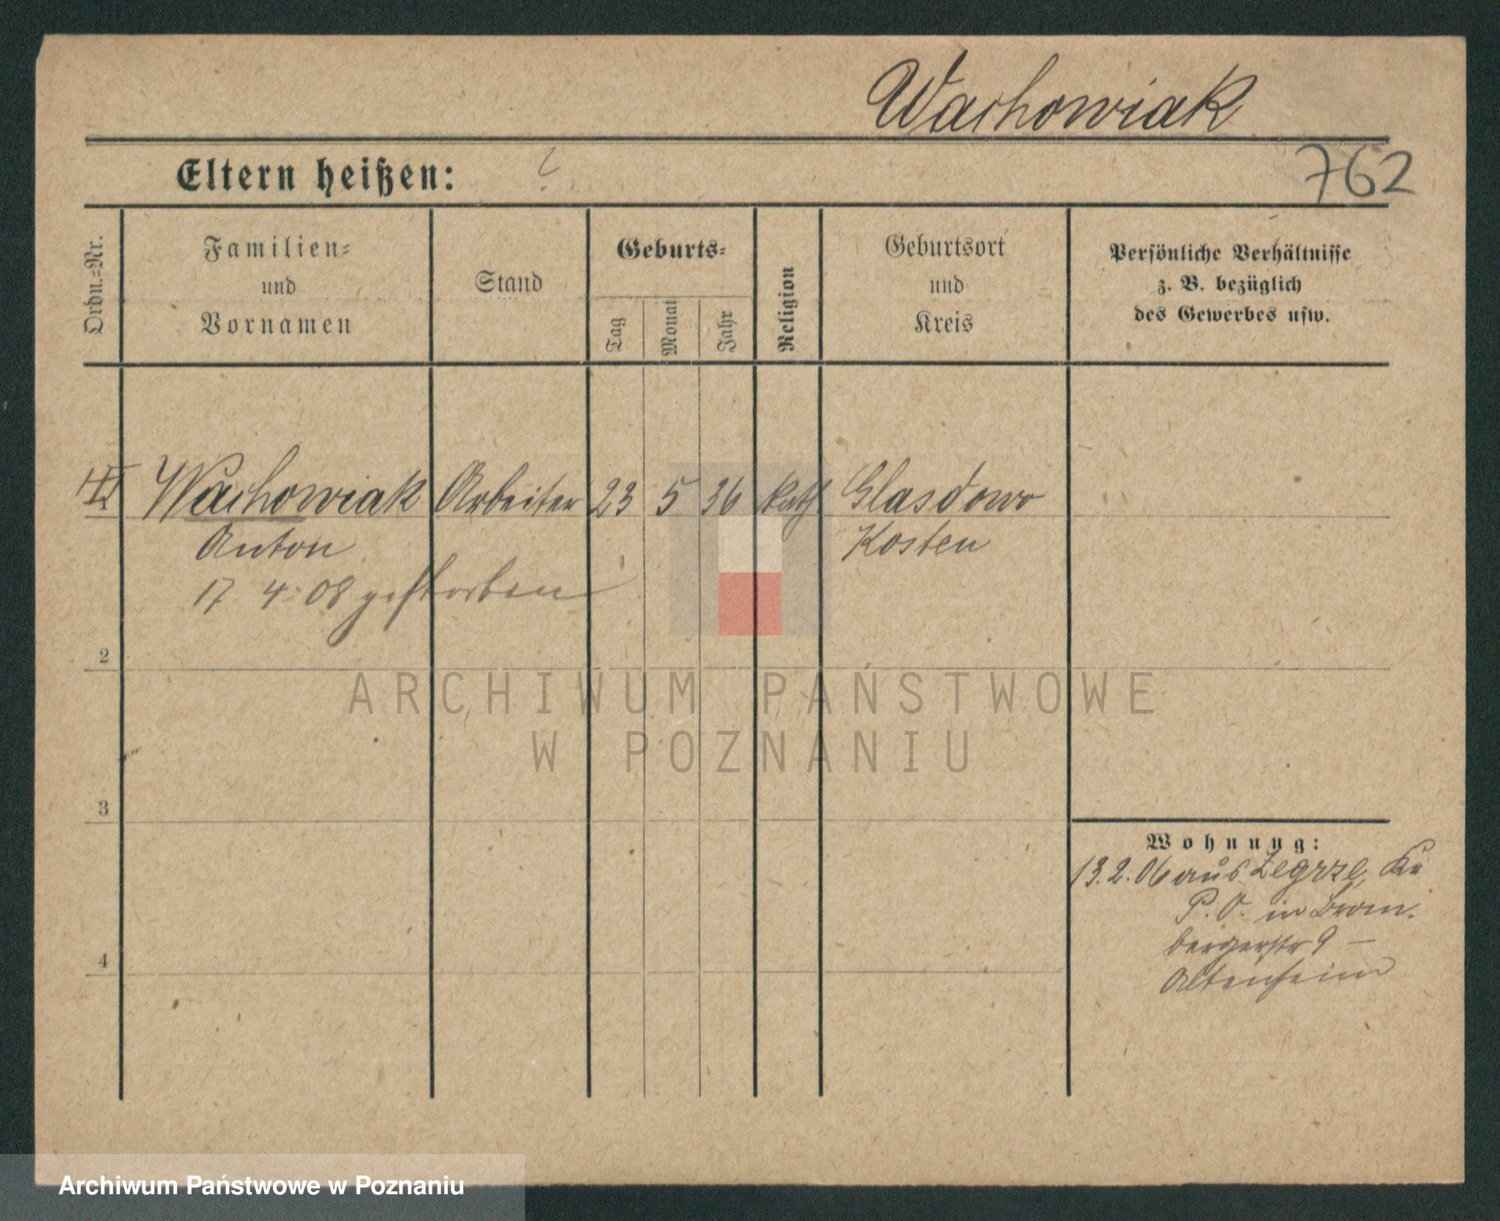 Wachowiak
Eltern heißen: ?
762
Ordn.=Nr.
Familien=
und
Vornamen
Stand
Geburts=
Tag
Monat
Jahr
Religion
Geburtsort
und
Kreis
Persönliche Verhältnisse
z. B. bezüglich
des Gewerbes usw.
Wachowiak Arbeiter 23 5 36 kath Glasdowo
Anton Kosten
17. 4. 08 gestorben
2
3
4
Wohnung:
13.2.06 aus Zegrze, Kr
P. O. in Brom.
bergerstr 9 –
Altenheim
ARCHIWUM PAŃSTWOWE
W POZNANIU
Archiwum Państwowe w Poznaniu